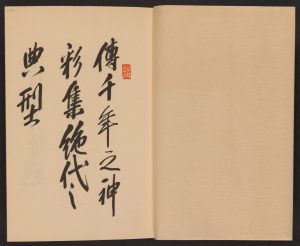 傳千年之神
彩集絶代之
典型